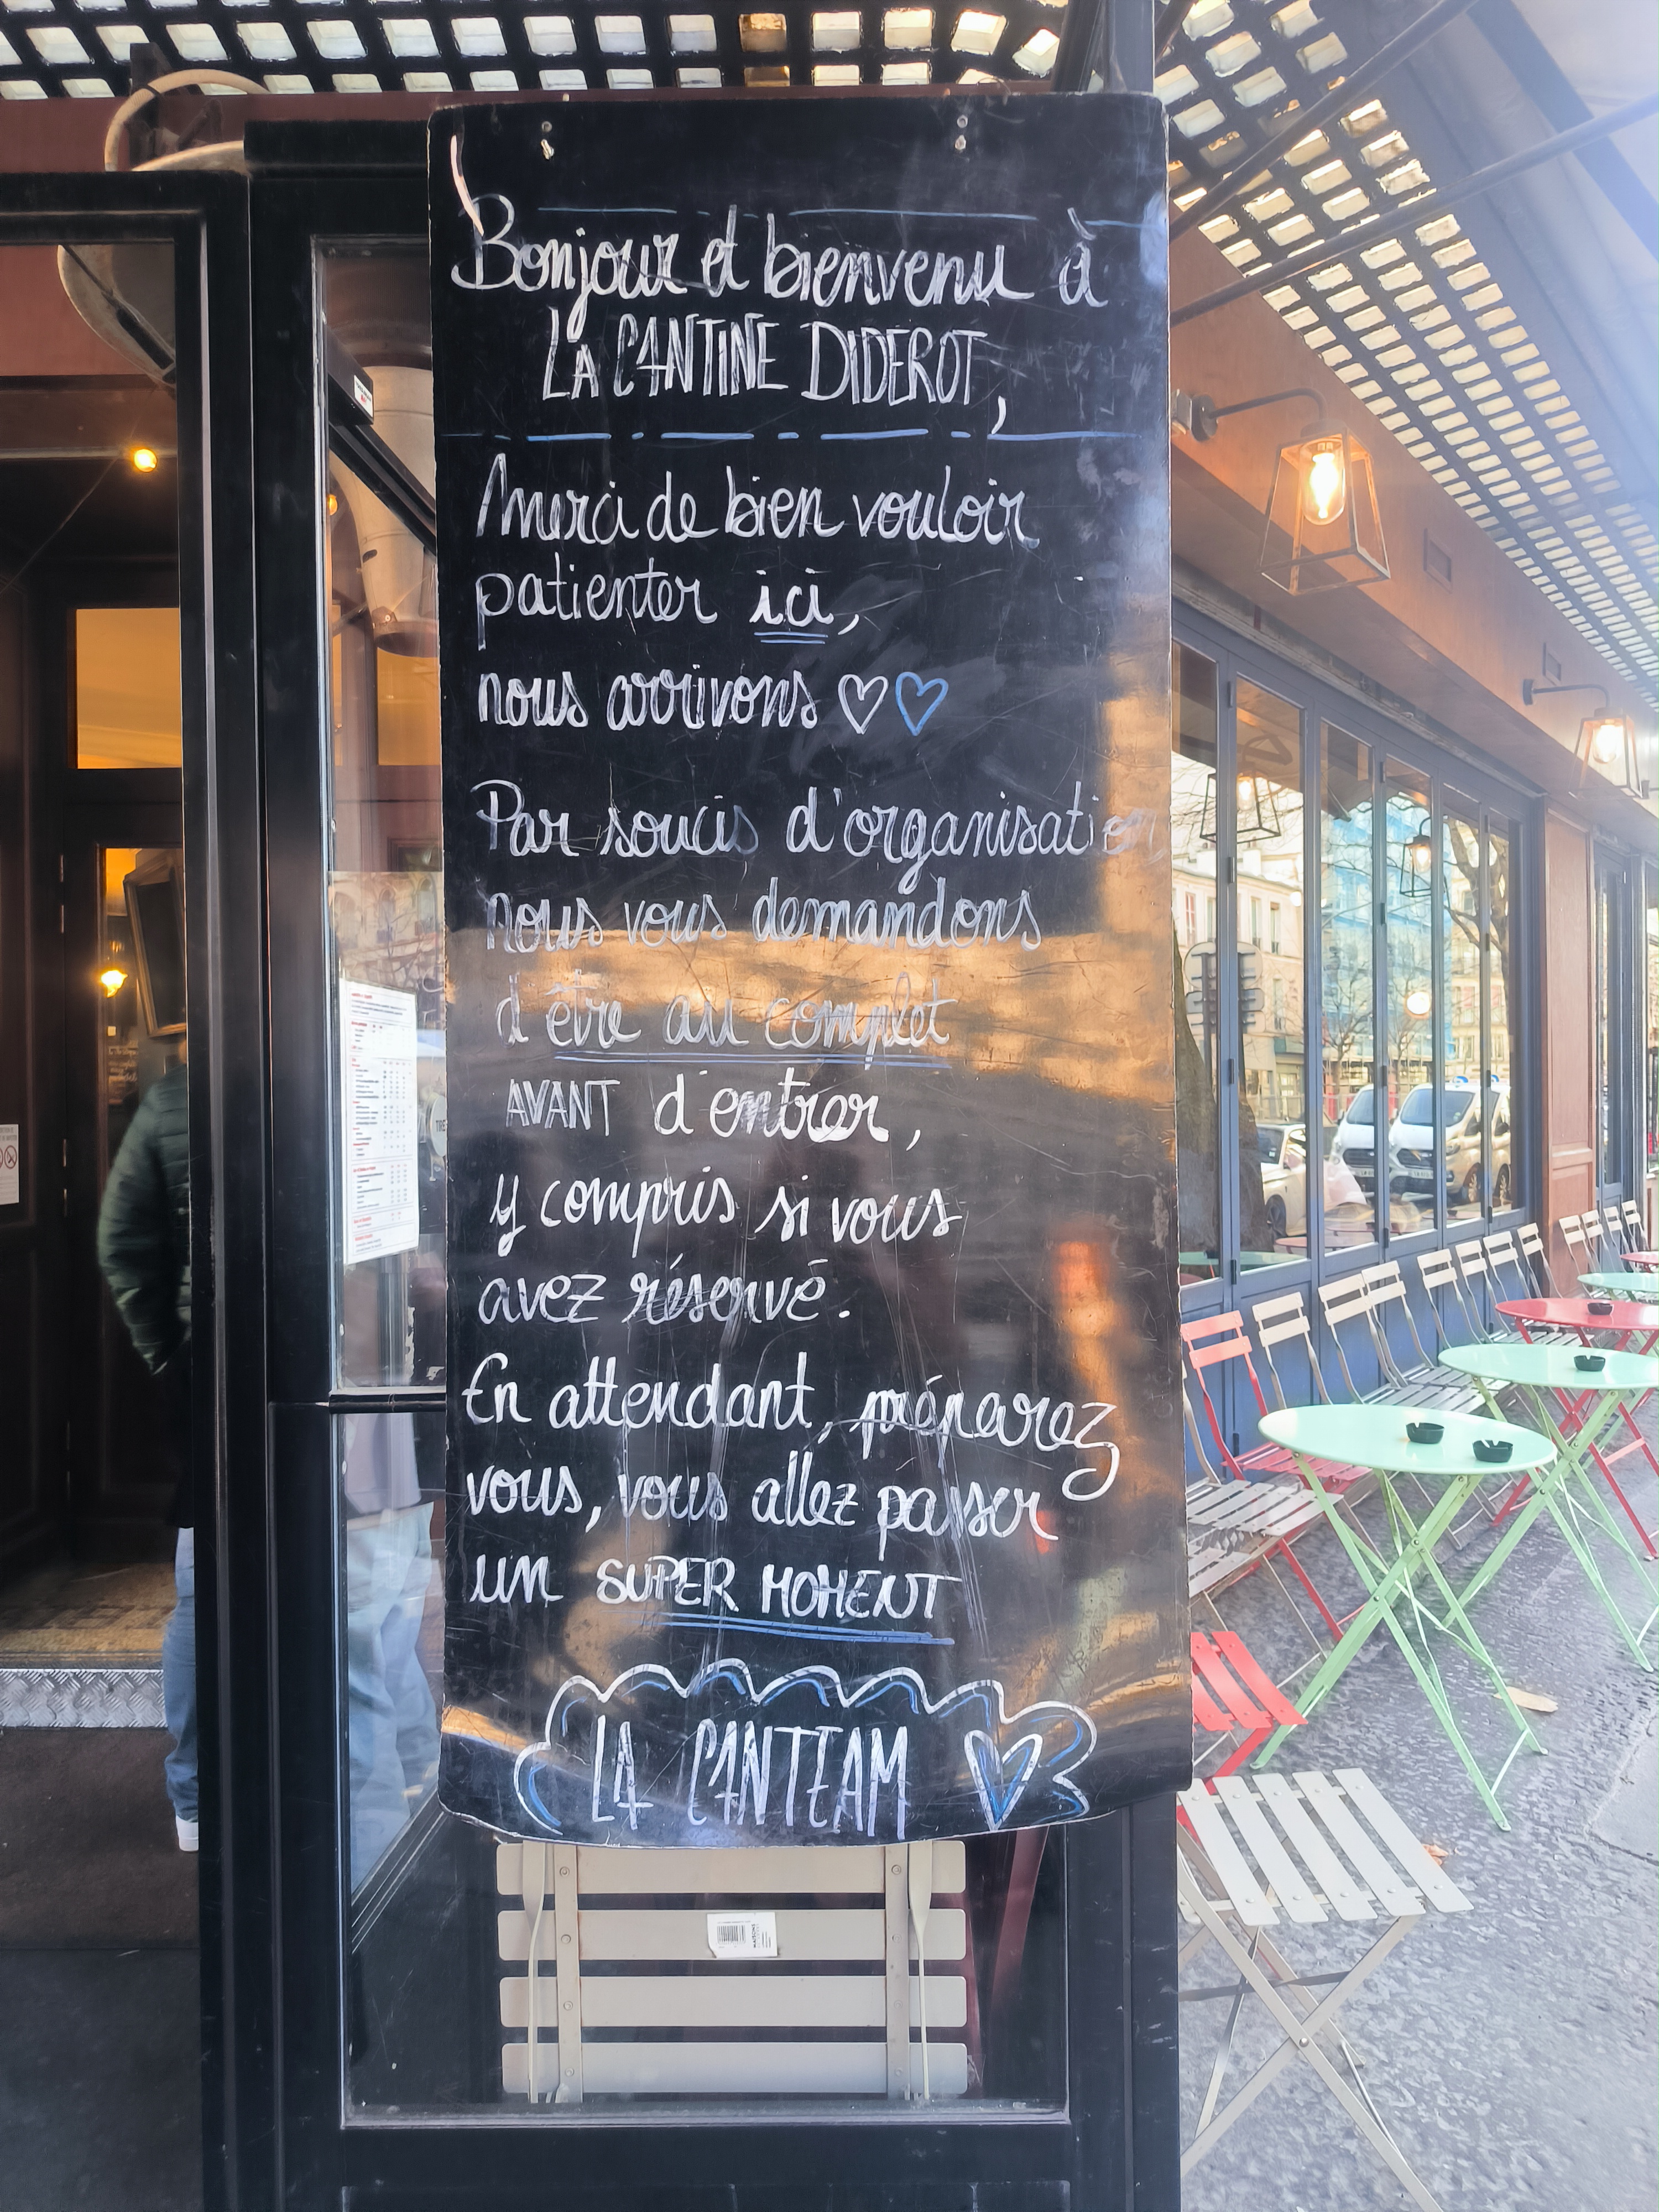 Bonjour et bienvenu à
LA CANTINE DIDEROT,
Merci de bien vouloir
patienter ici,
nous arrivons ♡♡
Par soucis d'organisation,
nous vous demandons
d'être au complet
AVANT d'entrer,
y compris si vous
avez réservé.
En attendant, préparez
vous, vous allez passer
un SUPER MOMENT
LA CANTEAM